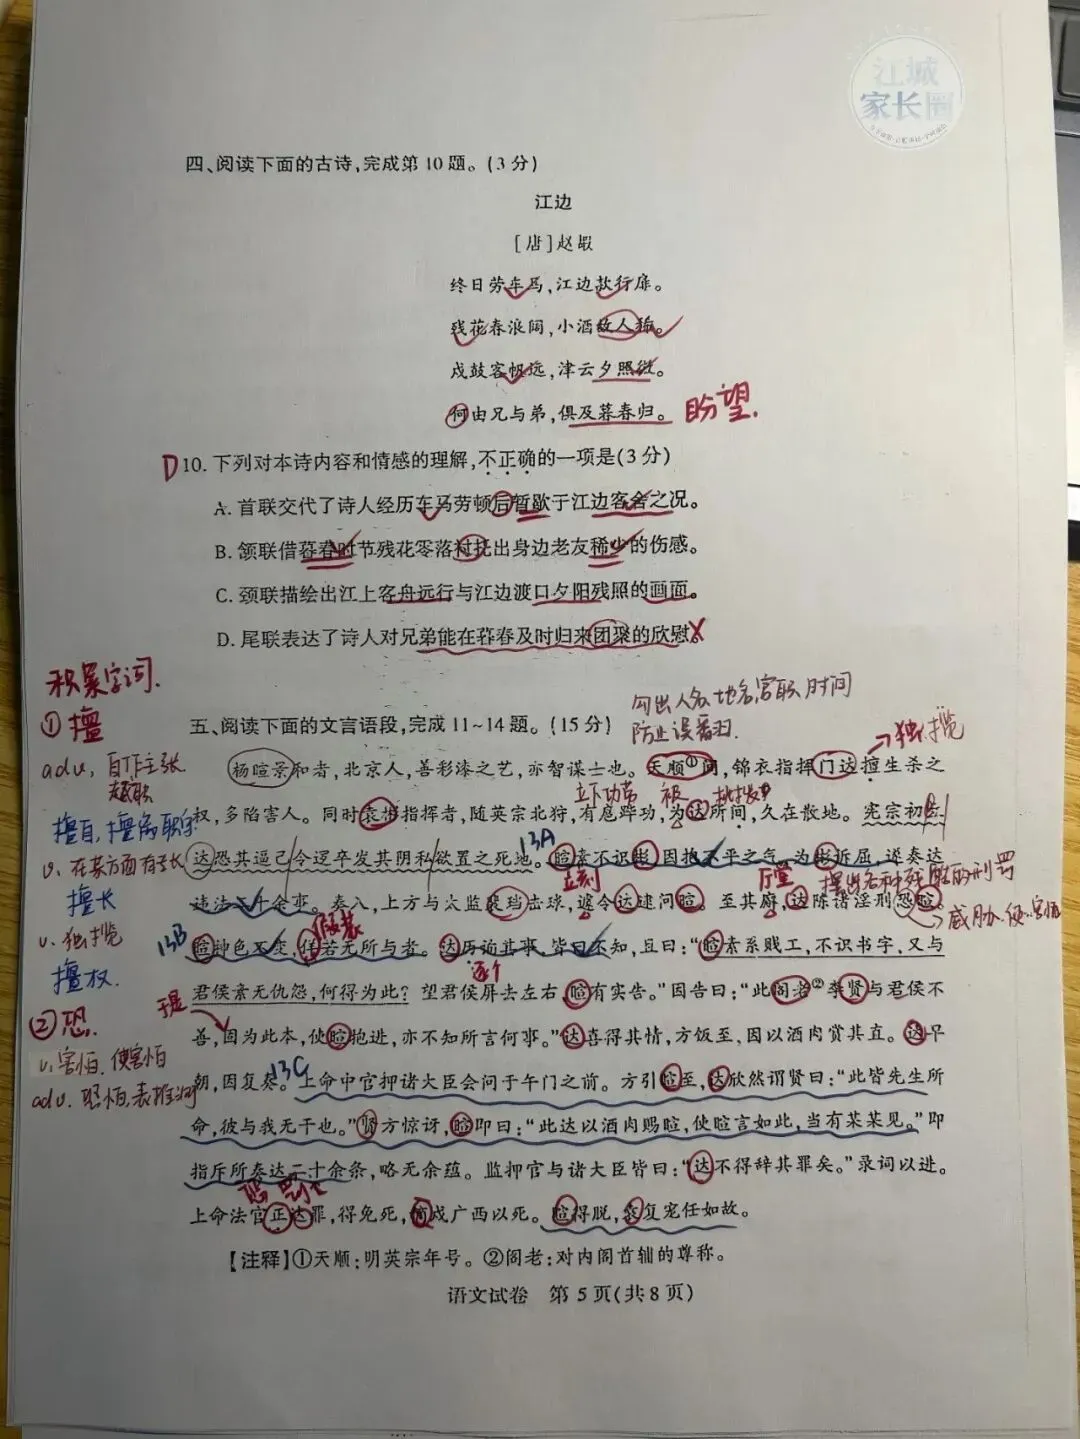 江城
家长圈
四、阅读下面的古诗,完成第10题。(3分)
江边
[唐]赵嘏
终日劳车马,江边款行扉。
残花春浪阔,小酒故人稀。
戍鼓客帆远,津云夕照微。
何由兄与弟,俱及暮春归。 盼望.
D 10. 下列对本诗内容和情感的理解,不正确的一项是(3分)
A. 首联交代了诗人经历车马劳顿后暂歇于江边客舍之况。
B. 颔联借暮春时节残花零落衬托出身边老友稀少的伤感。
C. 颈联描绘出江上客舟远行与江边渡口夕阳残照的画面。
D. 尾联表达了诗人对兄弟能在暮春及时归来团聚的欣慰。
积累字词.
①擅
adv, 自作主张
越职
擅自, 擅离职守
v. 在某方面有专长
擅长
v. 独揽
擅权.
②恐
v. 害怕. 使害怕
adv. 恐怕, 表推测
勾出人名 地名,官职,时间
防止误翻.
五、阅读下面的文言语段,完成11~14题。(15分)
独揽
杨暄景和者,北京人,善彩漆之艺,亦智谋士也。天顺①间,锦衣指挥门达擅生杀之
立下功劳 被
权,多陷害人。同时袁彬指挥者,随英宗北狩,有扈跸功,为达所间,久在散地。宪宗初立,
13A
达恐其逼己,令逻卒发其阴私,欲置之死地。暄素不识彬,因抱不平之气,为彬折屈,遂奏达
立刻 厅堂 摆出各种死胆的刑罚
违法二十余事。奏入,上方与太监裴珰击球,遽令达逮问暄。至其廨,达陈诸淫刑恐暄,
13B 假装 威胁、使…害怕
暄神色不变,佯若无所与者。达历询其事,皆曰不知,且曰:“暄素系贱工,不识书字,又与
逐个
君侯素无仇怨,何得为此?望君侯屏去左右,暄有实告。”因告曰:“此阁老②李贤与君侯不
于是
善,因为此本,使暄抱进,亦不知所言何事。”达喜得其情,方饭至,因以酒肉赏其直。达早
13C
朝,因复奏。上命中官押诸大臣会问于午门之前。方引暄至,达欣然谓贤曰:“此皆先生所
命,彼与我无干也。”贤方惊讶,暄即曰:“此达以酒肉赐暄,使暄言如此,当有某某见。”即
指斥所奏达二十余条,略无余蕴。监押官与诸大臣皆曰:“达不得辞其罪矣。”录词以进。
上命法官正达罪,得免死,谪戍广西以死。暄得脱,袁复宠任如故。
【注释】①天顺:明英宗年号。②阁老:对内阁首辅的尊称。
语文试卷 第5页(共8页)